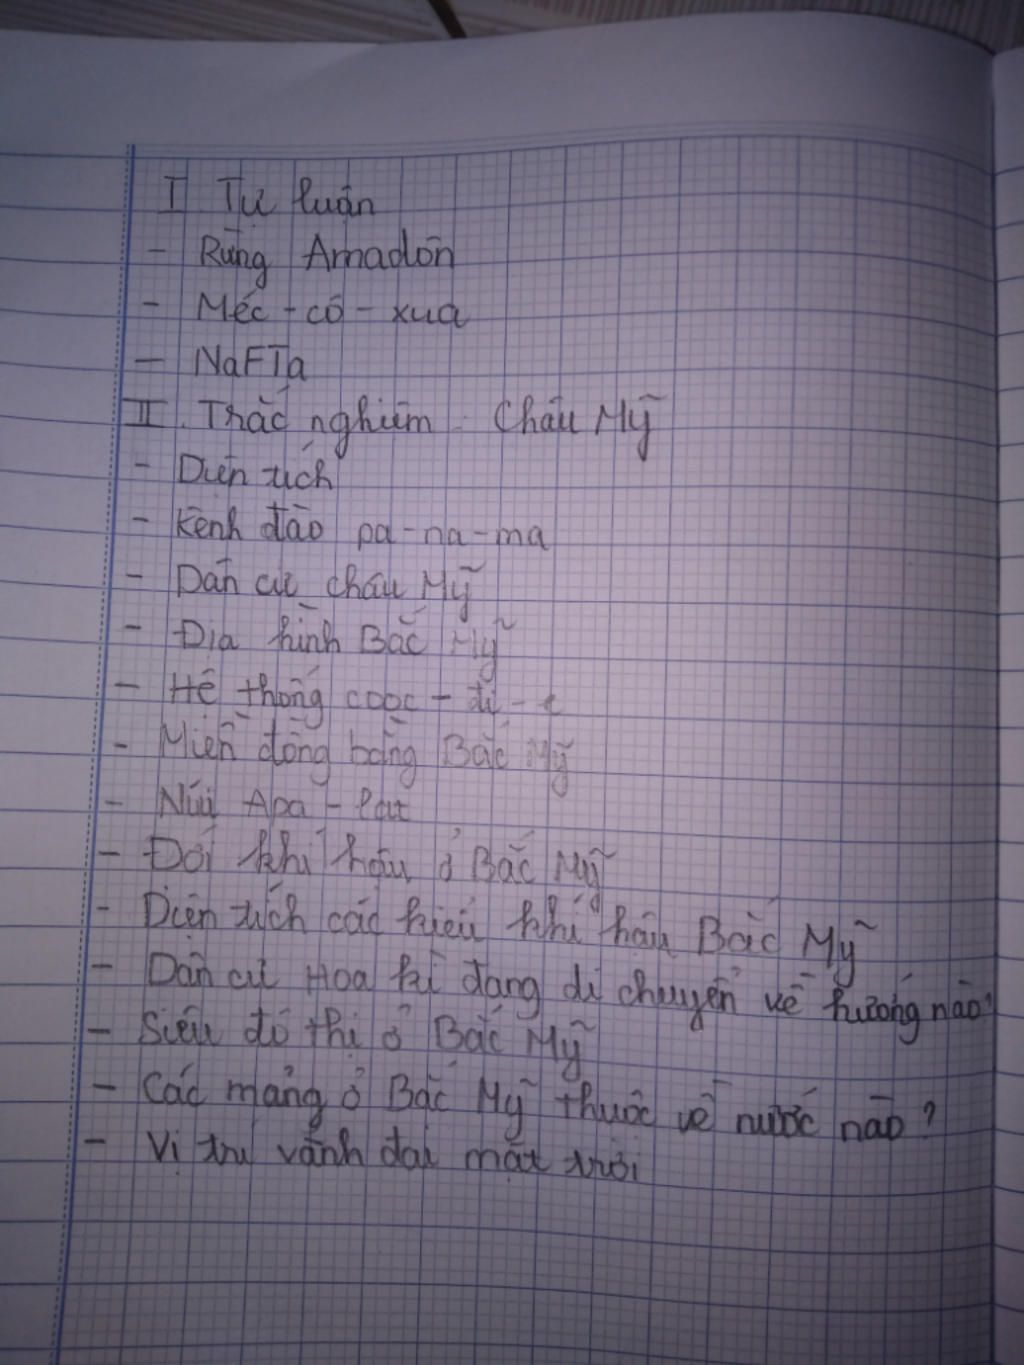 I Tự luận
- Rừng Amadôn
- Méc - cô - xua
- NaFTa
II. Trắc nghiệm. Châu Mỹ
- Diện tích
- Kênh đào pa-na-ma
- Dân cư châu Mỹ
- Địa hình Bắc Mỹ
- Hệ thống cooc - đi - e
- Miền đồng bằng Bắc Mỹ
- Núi Apa - lat
- Đới khí hậu ở Bắc Mỹ
- Diện tích các kiểu khí hậu Bắc Mỹ
- Dân cư Hoa kì đang di chuyển về hướng nào?
- Siêu đô thị ở Bắc Mỹ
- Các mảng ở Bắc Mỹ thuộc về nước nào?
- Vị trí vành đai mặt trời